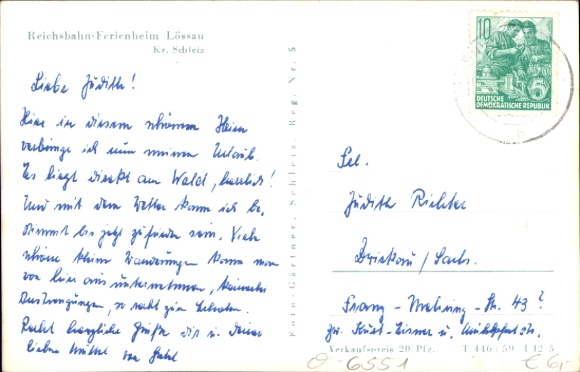 Reichsbahn-Ferienheim Lössau
Kr. Schleiz
Liebe Judith!
Hier in diesem schönen Heim
verbringe ich nun meinen Urlaub.
Es liegt direkt am Wald, herrlich!
Und mit dem Wetter kann ich be-
stimmt bis jetzt zufrieden sein. Viele
schöne kleine Wanderungen kann man
von hier aus unternehmen, keinerlei
Anstrengungen, so recht zum Erholen.
Recht herzliche Grüße dir u. Deiner
lieben Mutter von
Foto-Gärtner, Schleiz, Reg. Nr. 5
10
DEUTSCHE
DEMOKRATISCHE REPUBLIK
Frl.
Judith Richter
Zwickau/Sachs.
Franz-Mehring-Str. 43?
zw. Kurt-Eisner u.
Verkaufspreis 20 Pfg. T 446/59 I 12 5
0-6551
€6,-